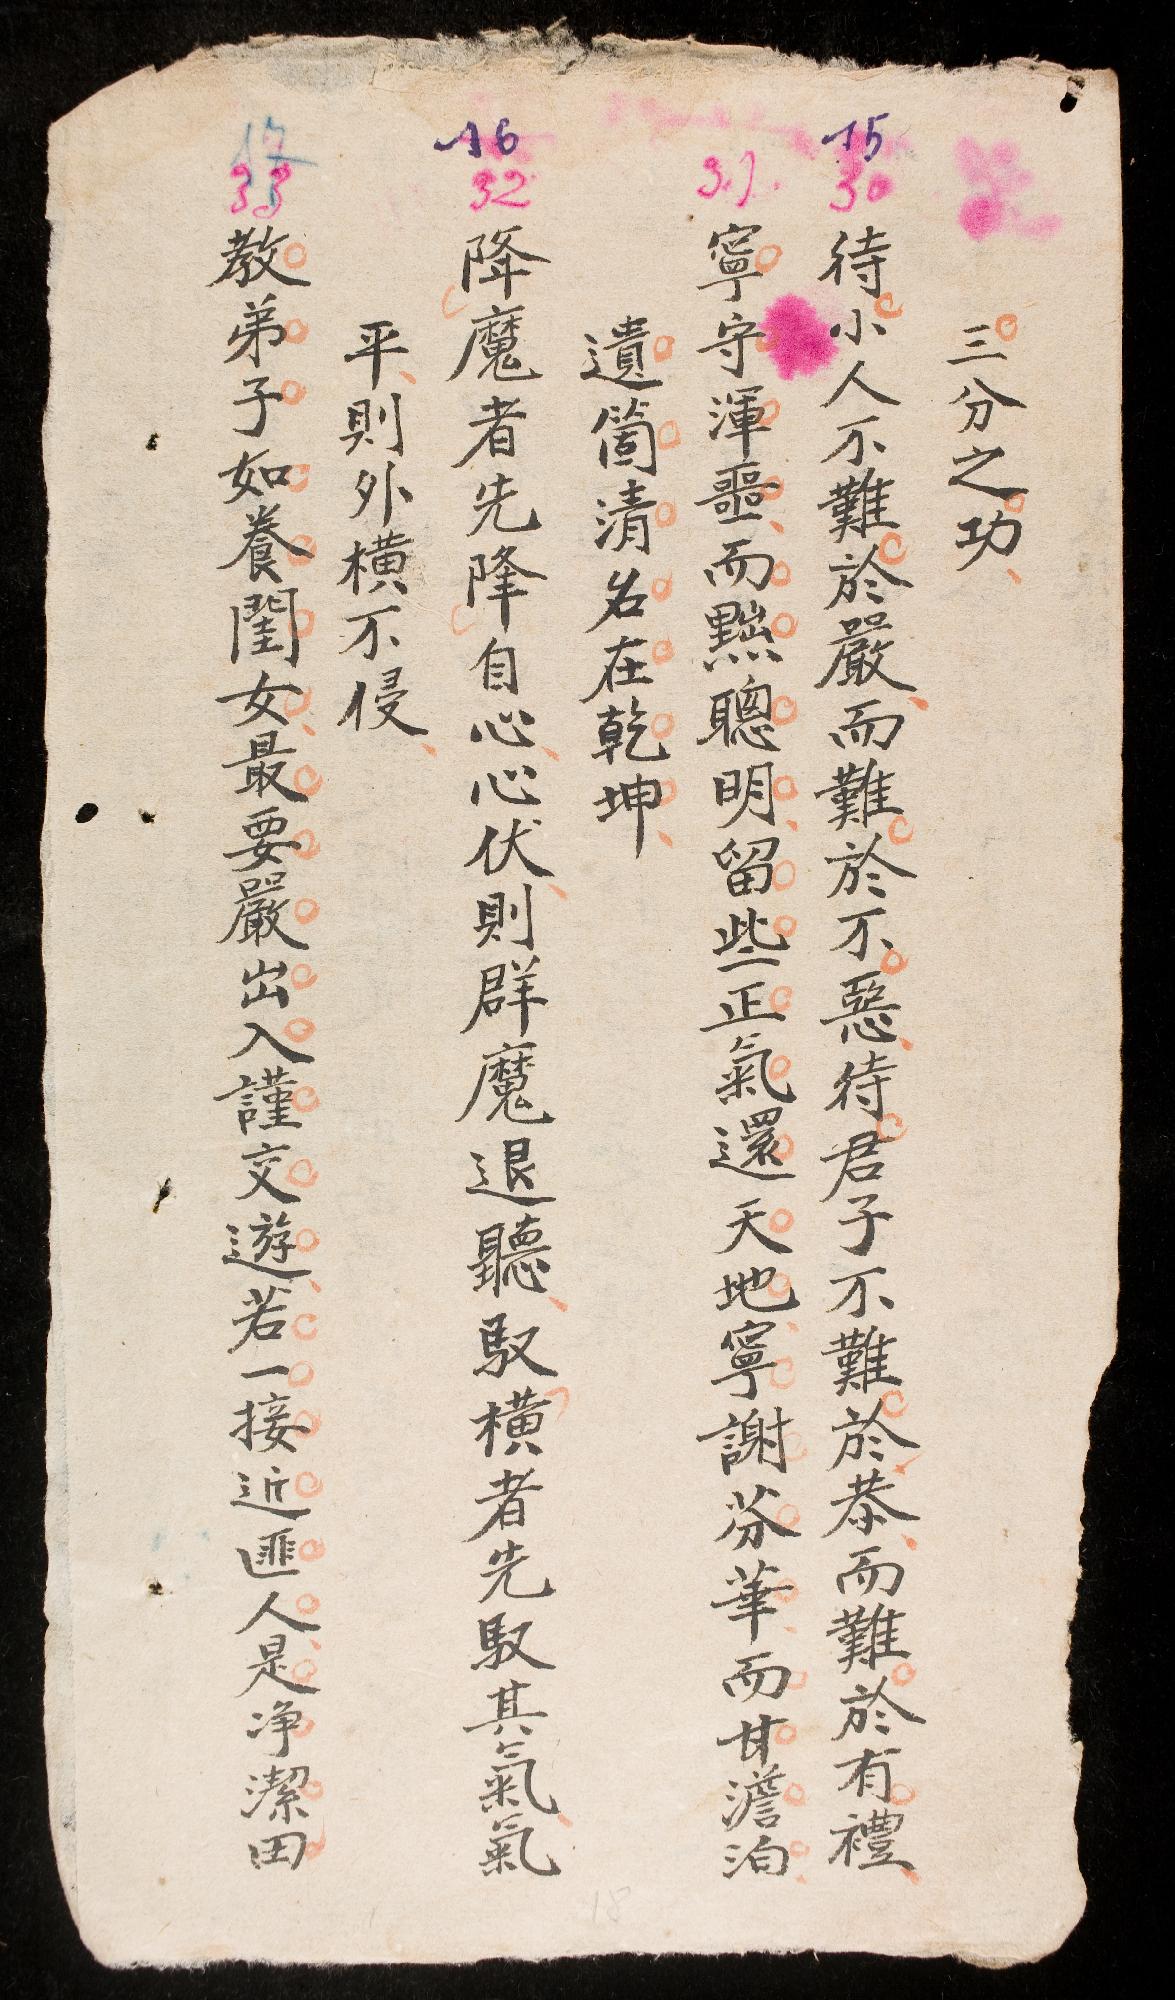 三分之功
15
30
待小人不難於嚴而難於不惡待君子不難於恭而難於有禮
31
寧守渾噩而黜聰明留些正氣還天地寧謝芬華而甘澹泊
遺箇清名在乾坤
16
32
降魔者先降自心心伏則群魔退聽馭橫者先馭其氣氣
平則外橫不侵
17
33
教弟子如養閨女最要嚴出入謹交遊若一接近匪人是净潔田
18